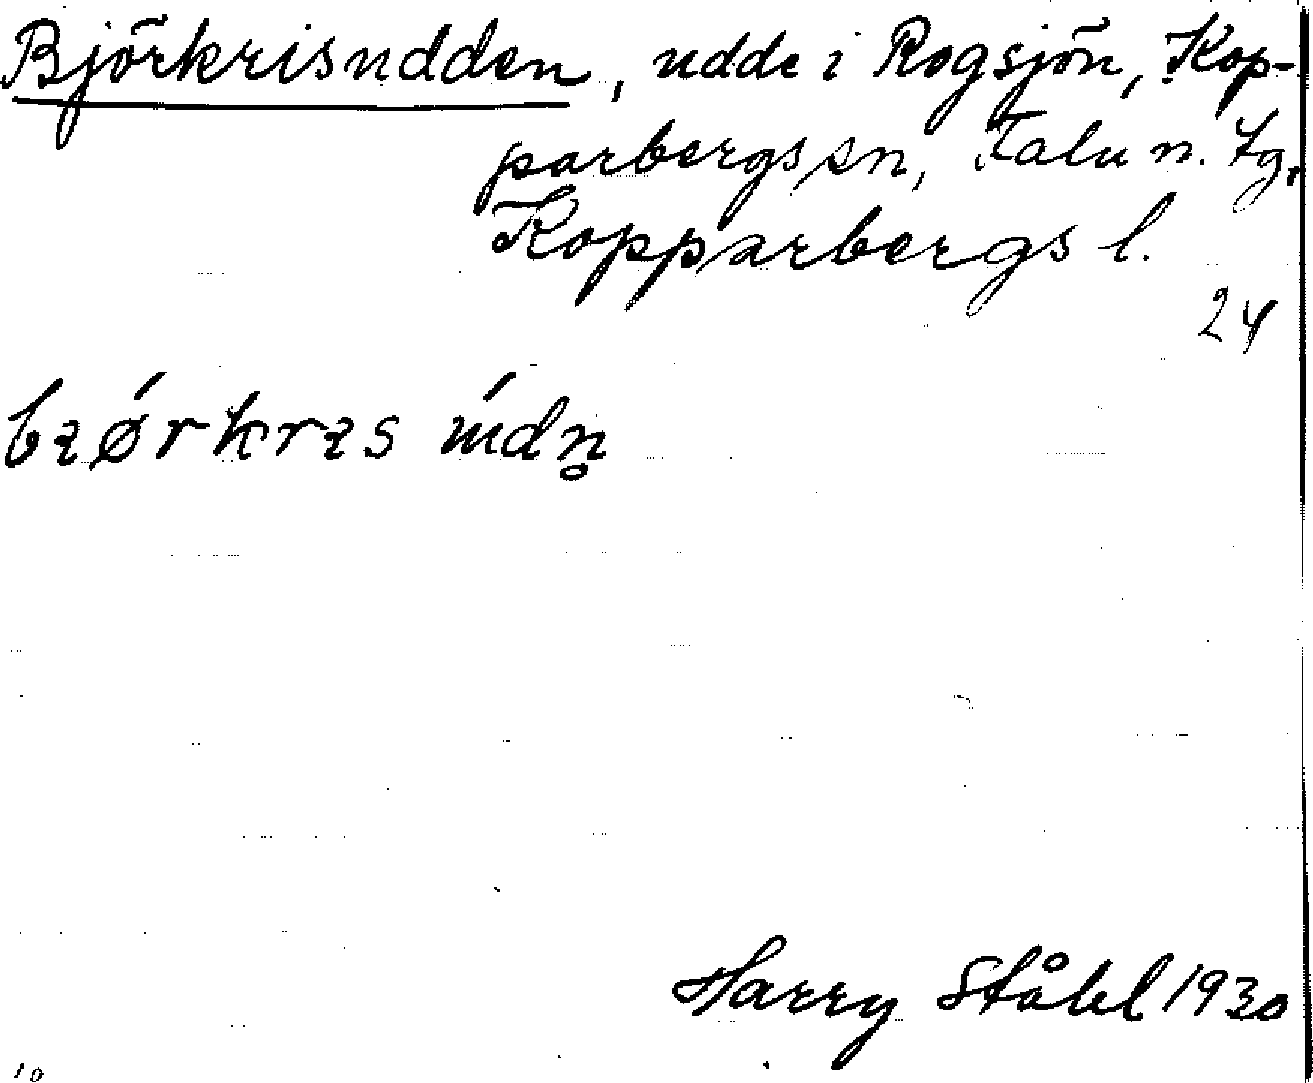 Björkrisudden, udde i Rogsjön, Kop-
parbergs sn, Falu n. tg,
Kopparbergs l.
24
bɪørkrɪs údn̥
Harry Ståhl 1930
10